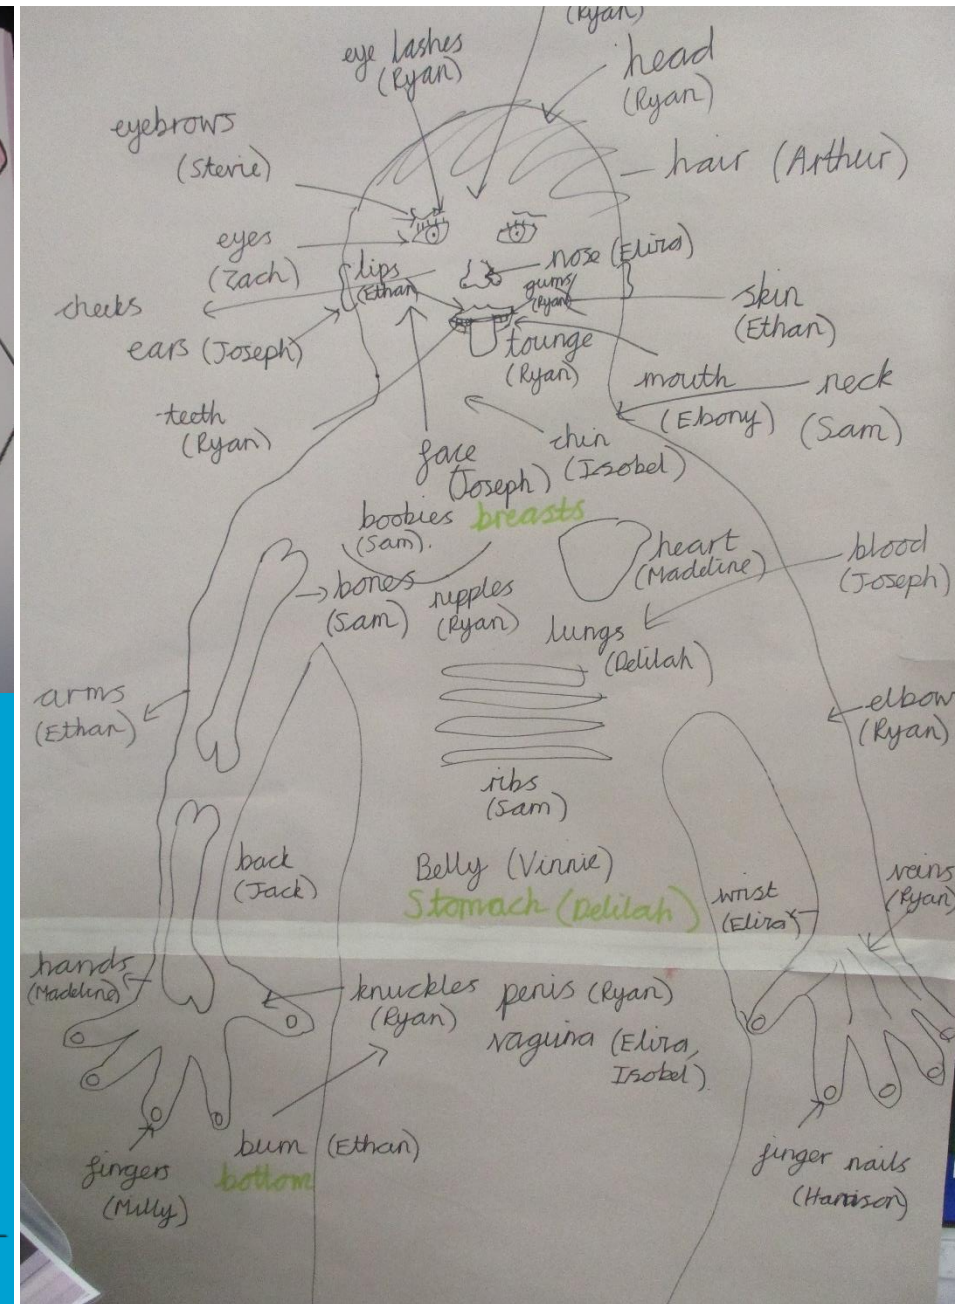 (Ryan)
eye lashes
(Ryan)
head
(Ryan)
eyebrows
(Stevie)
hair (Arthur)
eyes
(Zach)
lips
(Ethan)
nose (Elira)
gums
(Ryan)
skin
(Ethan)
cheeks
ears (Joseph)
tounge
(Ryan)
mouth
(Ebony)
neck
(Sam)
teeth
(Ryan)
face
(Joseph)
chin
(Isobel)
boobies breasts
(Sam).
heart
(Madeline)
blood
(Joseph)
bones
(Sam)
nipples
(Ryan)
lungs
(Delilah)
arms
(Ethan)
elbow
(Ryan)
ribs
(Sam)
back
(Jack)
Belly (Vinnie)
Stomach (Delilah)
wrist
(Elira)
veins
(Ryan)
hands
(Madeline)
knuckles
(Ryan)
penis (Ryan)
vagina (Elira,
Isobel)
bum (Ethan)
bottom
fingers
(Milly)
finger nails
(Harrison)